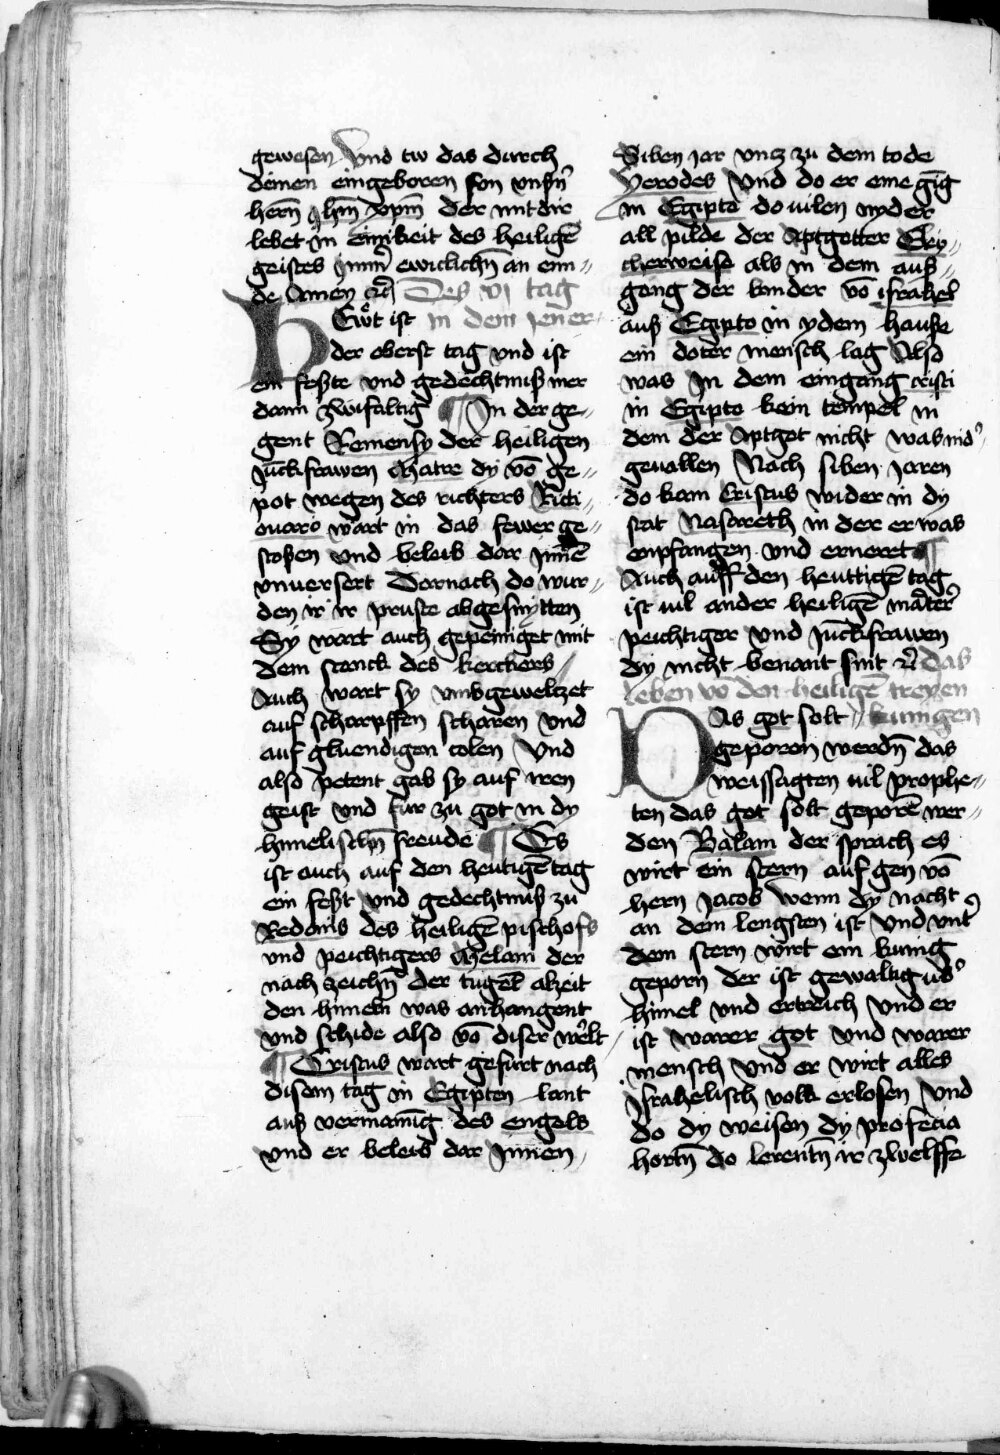 gewesen Vnd tw das durch
deinen eingeboren son vnsn̄
hern̄ ihm̄ xpm̄ der mit dir
lebet in einikeit des heiligē
geistes ymm̄ ewiclichn̄ an ein//
de Amen etc̄ Des vj tag
HEẅt ist in dem Jener
der oberst tag vnd ist
ein feßte vnd gedechtniß mer
dann zwifaltig ¶ In der ge//
gent Remensy der heiligen
Jūckfrawen Matre dy vō ge//
pot wegen des richters Ricti//
ouaro wart in das fewer ge//
stoßen vnd beleib dar Jnnē
vnuersert Dornach do wur//
den ir ir pruste abgesnytten
Sy wart auch gepeiniget mit
dem stanck des kerckers /
Auch wart sy vmbgeweltzet
auf scharpffen scharen vnd
auf gluendigen colen Vnd
also petent gab sy auf iren
geist vnd fur zu got in dy
himelischn̄ freude ¶ Es
ist auch auf den heutigē tag
ein feßt vnd gedechtniß zu
Redonis des heiligē pischofs
vnd peichtigers Melani der
nach zeichn̄ der tugēt alzeit
den himeln was anhangent
vnd schide also vō diser welt
¶ Cristus wart gefurt nach
disem tag in Egipten lant
auß vermanūg des engels
vnd er beleib dar Jnnen
Siben jar vntz zu dem tode
Herodes Vnd do er eine gīg
in Egipto do vilen nyder
all pilde der Aptgotter Gley//
cherweise als in dem auß//
gang der kinder vō israhel
auß Egipto in ydem hauße
ein doter mensch lag Also
was In dem eingang cristi
in Egipto kein tempel in
dem der Aptgot nicht was nid'
geuallen Nach siben jaren
do kam Cristus wider in dy
stat Nasareth in der er was
enpfangen vnd erneret ¶
Auch auff den heuttigē tag
ist vil ander heiligē marter'
peichtiger vnd Jūckfrawen
dy nicht benant sint etc̄ das
leben vō den heiligē treyen
DAs got solt // kunigen
geporen werdn̄ das
weissagten vil prophe//
ten das got solt geporē wer//
den Balam der sprach es
wirt ein stern auf gen vō
hern Jacob wenn dy nacht
an dem lengsten ist Vnd vnt'
dem stern wirt ein kunig
geporn der ist gewaltig vb'
himel vnd ertreich Vnd er
ist warer got Vnd warer
mensch Vnd er wirt alles
Israhelisch volk erlosen Vnd
do dy weisen dy profecia
hortn̄ do lerentn̄ ir zwelffe